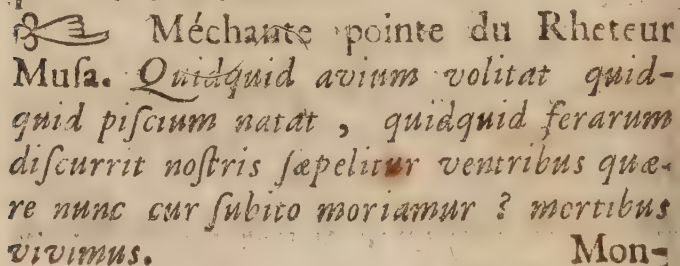 ☞ Méchante pointe du Rheteur
Muſa. Quidquid avium volitat quid-
quid piſcium natat, quidquid ferarum
diſcurrit noſtris ſæpelitur ventribus quæ-
re nunc cur ſubito moriamur ? mortibus
vivimus. Mon-